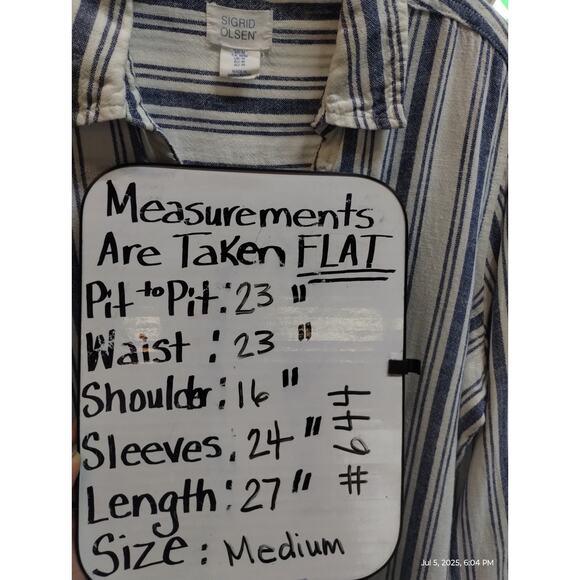 SIGRID
OLSEN
Measurements
Are Taken FLAT
Pit to Pit: 23 "
Waist : 23 "
Shoulder: 16 "
Sleeves: 24 "
Length: 27 "
Size: Medium
# 644
Jul 5, 2025, 6:04 PM